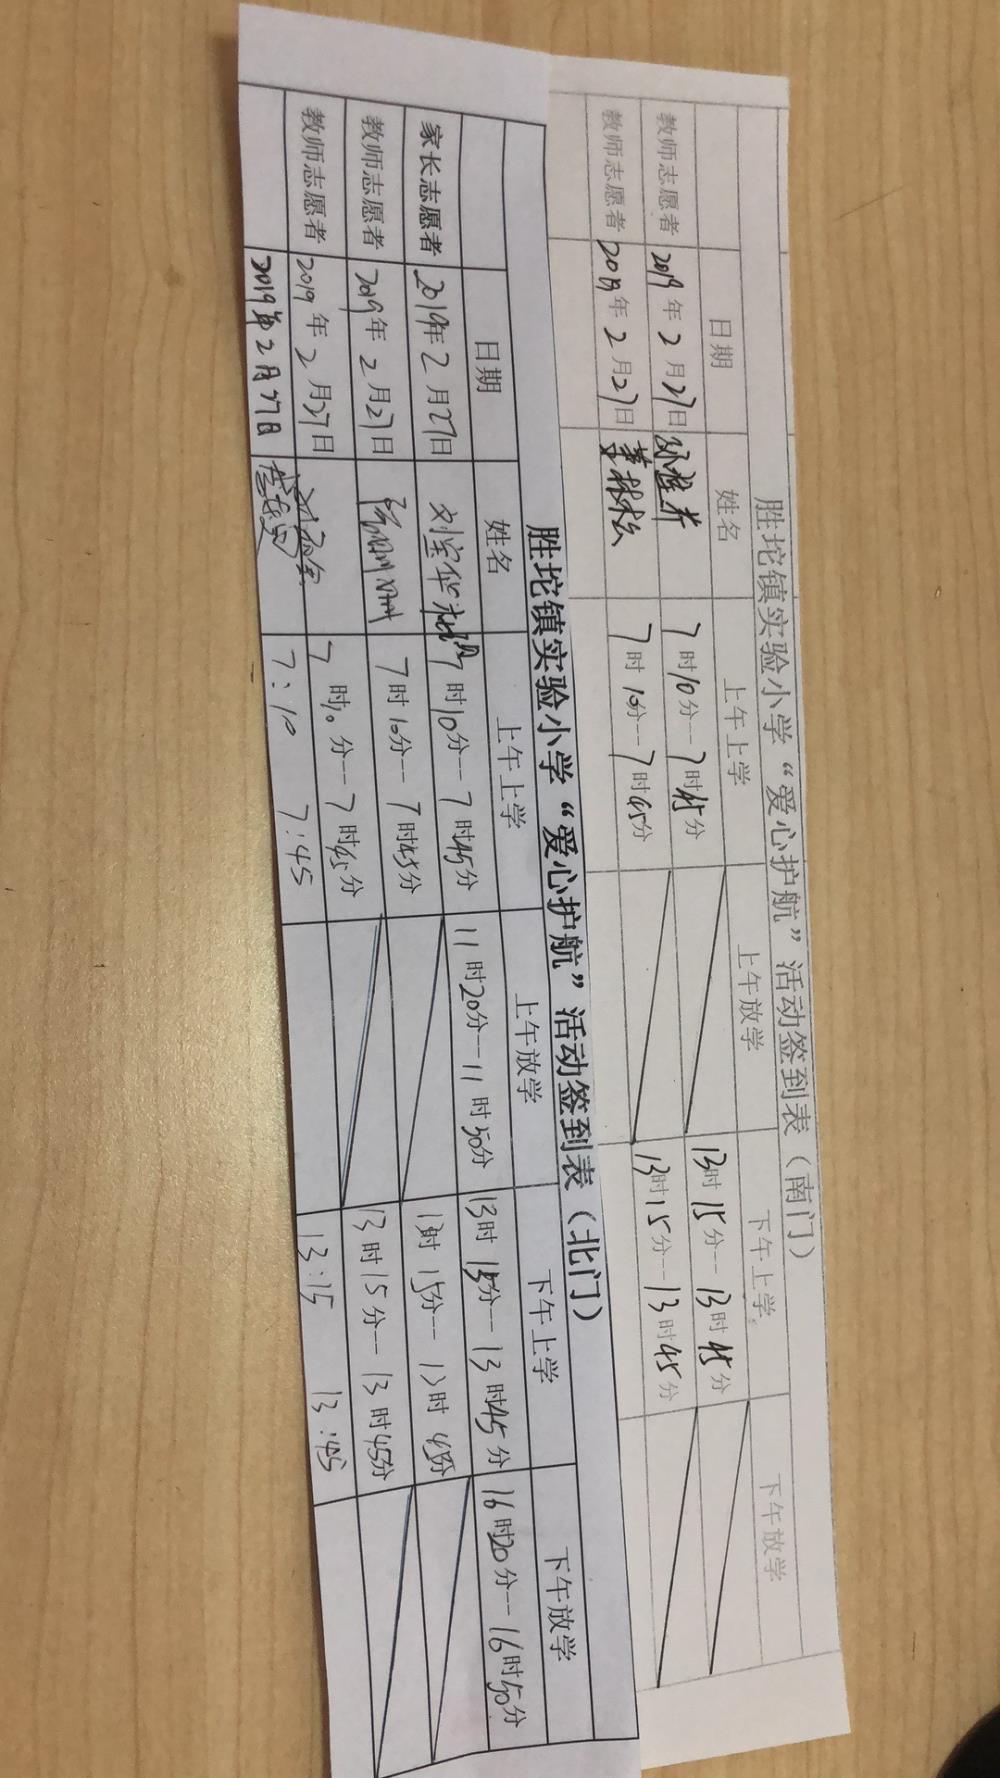 胜坨镇实验小学“爱心护航”活动签到表（南门）
日期 姓名 上午上学 上午放学 下午上学 下午放学
教师志愿者 2019年2月27日 7时10分--7时45分 13时15分--13时45分
教师志愿者 2019年2月27日 7时10分--7时45分 13时15分--13时45分
胜坨镇实验小学“爱心护航”活动签到表（北门）
日期 姓名 上午上学 上午放学 下午上学 下午放学
家长志愿者 2019年2月27日 刘宝华 7时10分--7时45分 11时20分--11时50分 13时15分--13时45分 16时20分--16时50分
教师志愿者 2019年2月27日 7时10分--7时45分 13时15分--13时45分
教师志愿者 2019年2月27日 7时10分--7时45分 13时15分--13时45分
2019年2月27日 7:10 7:45 13:15 13:45